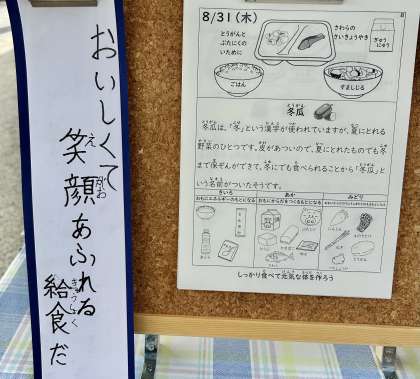 おいしくて
笑顔あふれる
給食だ
8/31(木)
とうがんと
ぶたにくの
いために
さわらの
さいきょうやき
ぎゅう
にゅう
ごはん
すましじる
冬瓜
冬瓜は、「冬」という漢字が使われていますが、夏にとれる
野菜のひとつです。皮があついので、夏にとれたものでも冬
まで保ぞんができて、冬にでも食べられることから「冬瓜」と
いう名前がついたそうです。
きいろ
あか
みどり
おもにエネルギーのもとになる
おもにからだをつくるもとになる
しっかり食べて元気な体を作ろう